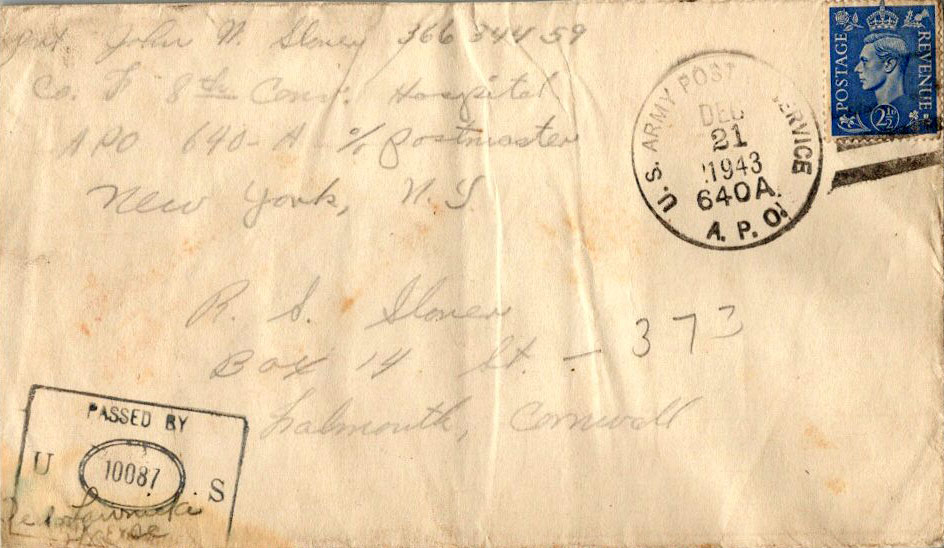 Pvt. John N. Sloney 36634459
Co. F 8th Conv. Hospital
APO 640-A % Postmaster
New York, N.Y.
U.S. ARMY POSTAL SERVICE
DEC
21
1943
640A
A.P.O.
POSTAGE REVENUE
2½D
R. S. Sloney
Box 14 St. - 373
Falmouth, Cornwall
PASSED BY
U 10087 S